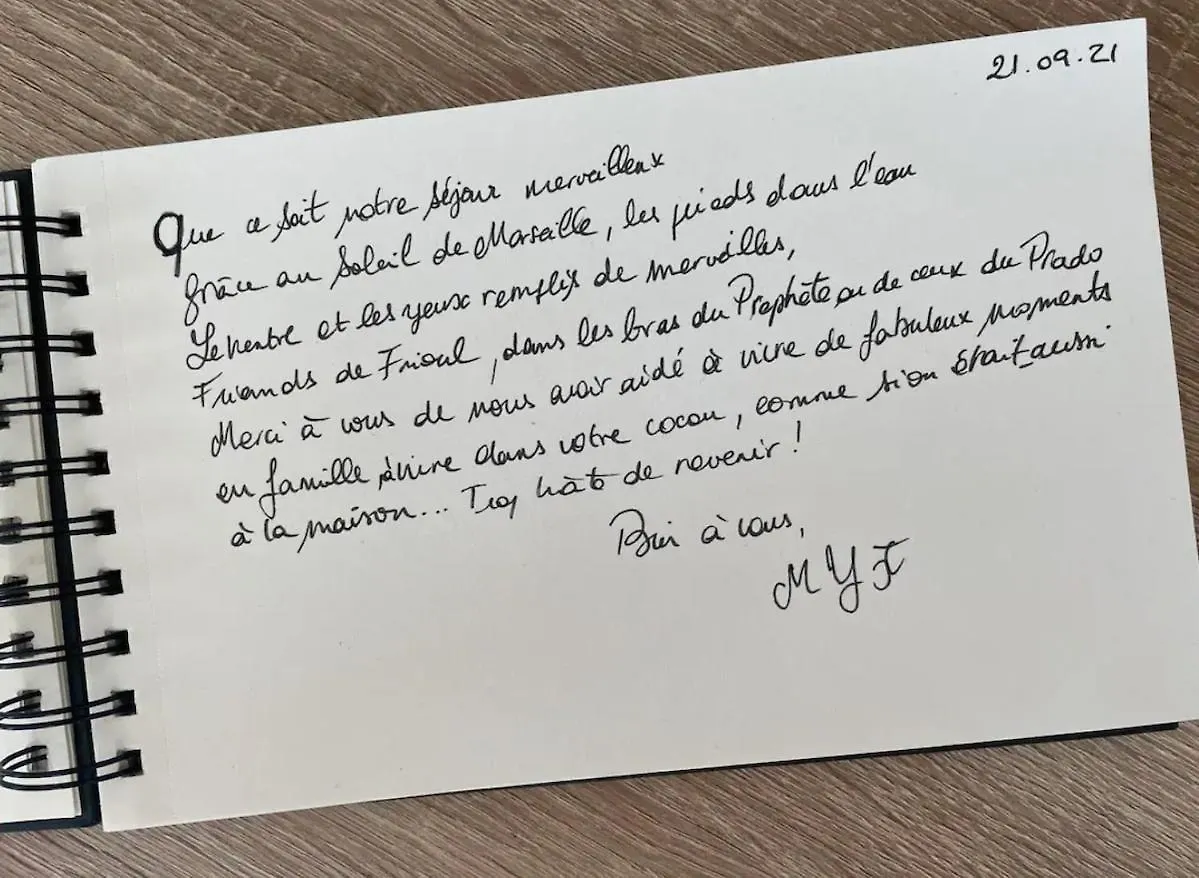 21.09.21
Que ce soit notre séjour merveilleux
grâce au soleil de Marseille, les pieds dans l'eau
Le ventre et les yeux remplis de merveilles,
Friands de Frioul, dans les bras du Prophète ou de ceux du Prado
Merci à vous de nous avoir aidé à vivre de fabuleux moments
en famille, à vivre dans votre cocon, comme si on était aussi
à la maison... Trop hâte de revenir !
Bien à vous,
M Y